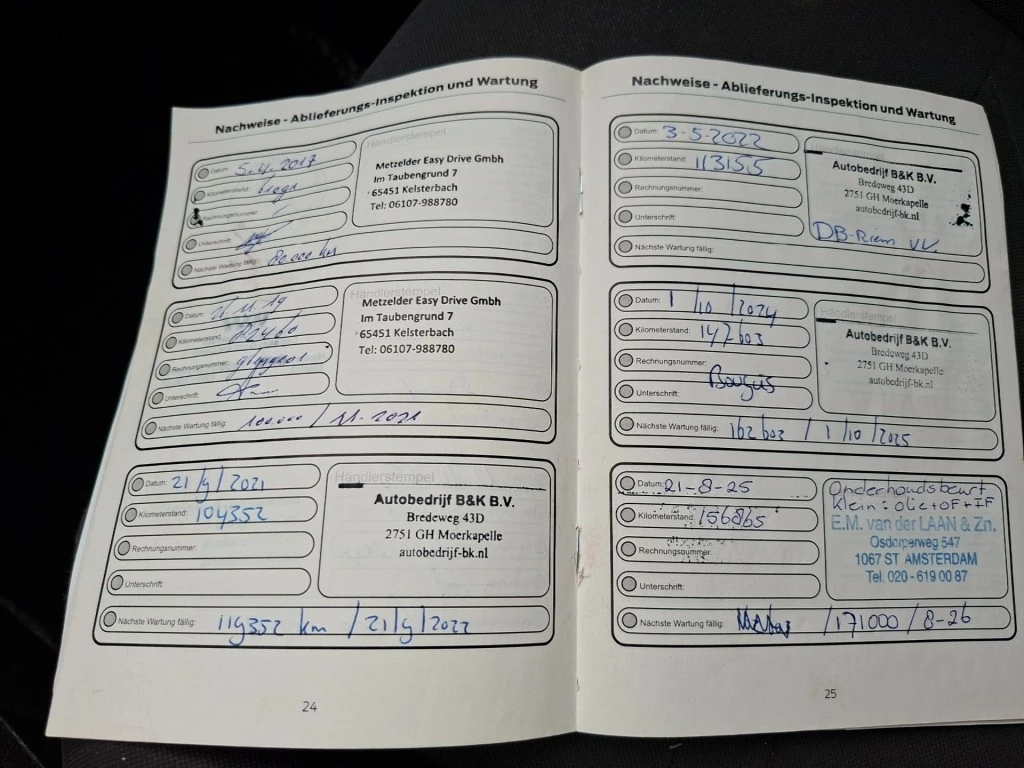 Nachweise - Ablieferungs-Inspektion und Wartung
Händlerstempel
Datum: 5.4.2017
Kilometerstand:
Rechnungsnummer:
Unterschrift:
Nächste Wartung fällig: 80.000 km
Metzelder Easy Drive Gmbh
Im Taubengrund 7
65451 Kelsterbach
Tel: 06107-988780
Händlerstempel
Datum: 11.19
Kilometerstand: 82460
Rechnungsnummer:
Unterschrift:
Nächste Wartung fällig: 100.000 / 11-2021
Metzelder Easy Drive Gmbh
Im Taubengrund 7
65451 Kelsterbach
Tel: 06107-988780
Händlerstempel
Datum: 21/9/2021
Kilometerstand: 104352
Rechnungsnummer:
Unterschrift:
Nächste Wartung fällig: 119352 km / 21/9/2022
Autobedrijf B&K B.V.
Bredeweg 43D
2751 GH Moerkapelle
autobedrijf-bk.nl
24
Nachweise - Ablieferungs-Inspektion und Wartung
Datum: 3-5-2022
Kilometerstand: 113155
Rechnungsnummer:
Unterschrift:
Nächste Wartung fällig:
Händlerstempel
Autobedrijf B&K B.V.
Bredeweg 43D
2751 GH Moerkapelle
autobedrijf-bk.nl
DB-Riem VV.
Datum: 1/10/2024
Kilometerstand: 147603
Rechnungsnummer:
Bougies
Unterschrift:
Nächste Wartung fällig: 162602 / 1/10/2025
Händlerstempel
Autobedrijf B&K B.V.
Bredeweg 43D
2751 GH Moerkapelle
autobedrijf-bk.nl
Datum: 21-8-25
Kilometerstand: 156865
Rechnungsnummer:
Unterschrift:
Nächste Wartung fällig: /171000/8-26
Onderhoudsbeurt
klein: olie+OF+IF
E.M. van der LAAN & Zn.
Osdorperweg 547
1067 ST AMSTERDAM
Tel. 020 - 619 00 87
25